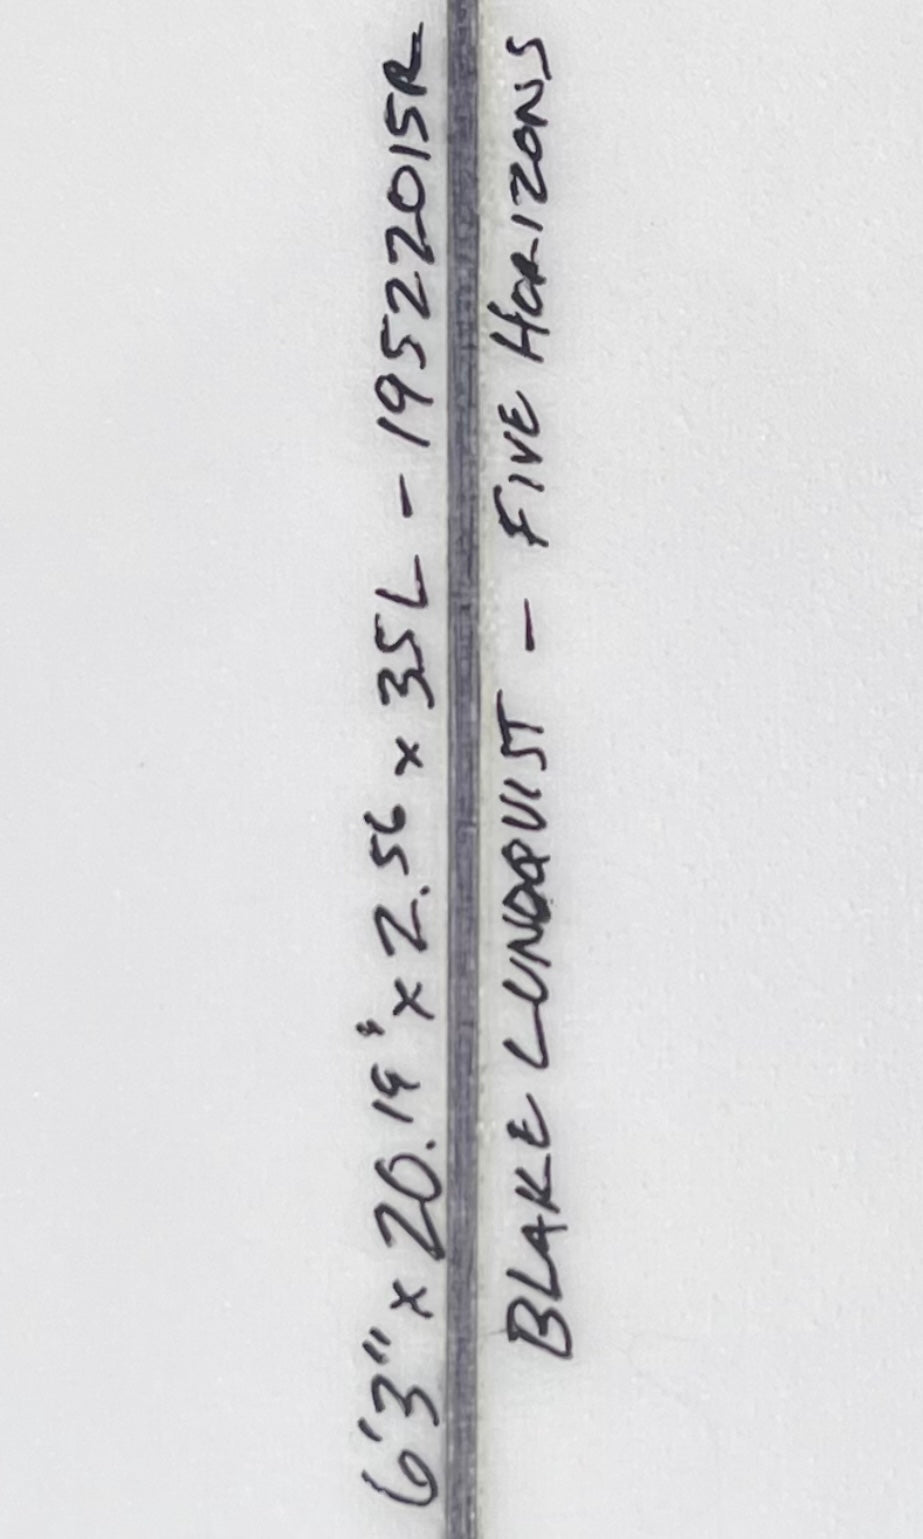 6'3" x 20.19" x 2.56 x 35L - 19522015R
BLAKE LUNDQUIST - FIVE HORIZONS